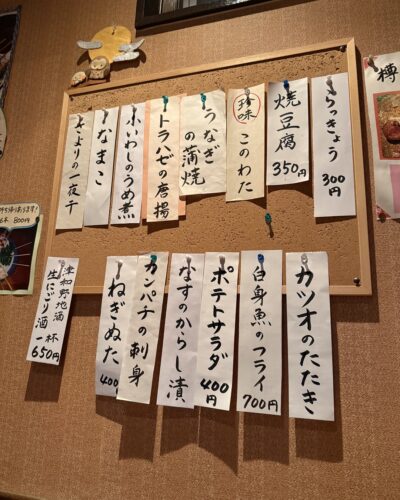 らっきょう
300円
焼豆腐
350円
珍味
このわた
うなぎ
の蒲焼
トラハゼの唐揚
小いわしのうめ煮
なまこ
さよりの一夜干
カツオのたたき
白身魚のフライ
700円
ポテトサラダ
400円
なすのからし漬
カンパチの刺身
ねぎぬた
400
津和野地酒
生にごり酒一杯
650円
樽
800円